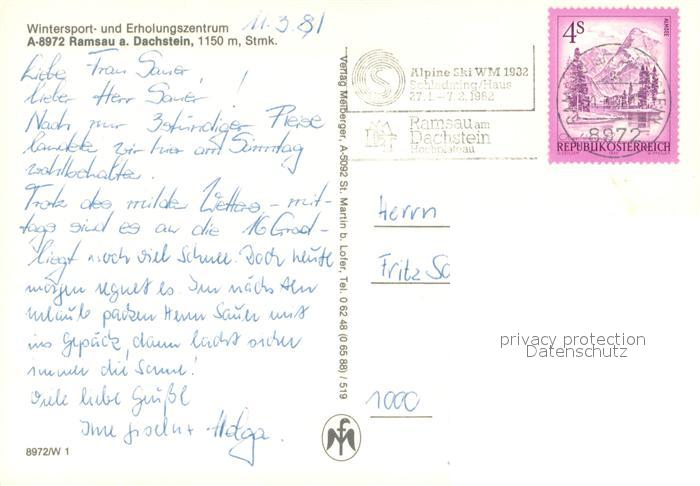 Wintersport- und Erholungszentrum
A-8972 Ramsau a. Dachstein, 1150 m, Stmk.
11.3.81
Liebe Frau Sauer,
lieber Herr Sauer!
Nach nur 3stündiger Reise
landete wir hier am Sonntag
wohlbehalten.
Trotz des milden Wetters - mit-
tags sind es an die 16 Grad -
liegt noch viel Schnee. Doch heute
morgen regnet es. Im nächsten
Urlaub packen Herrn Sauer mit
ins Gepäck, dann lacht sicher
immer die Sonne!
Viele liebe Grüße
Ihre Gisela + Helga.
8972/W 1
Verlag Melberger, A-5092 St. Martin b. Lofer, Tel. 0 62 48 (0 65 88) / 519
Alpine Ski WM 1982
Schladming/Haus
27.1.-7.2.1982
Ramsau am
Dachstein
Hochplateau
4S
ALMSEE
8972
REPUBLIK ÖSTERREICH
Herrn
Fritz Sa
1000
privacy protection
Datenschutz